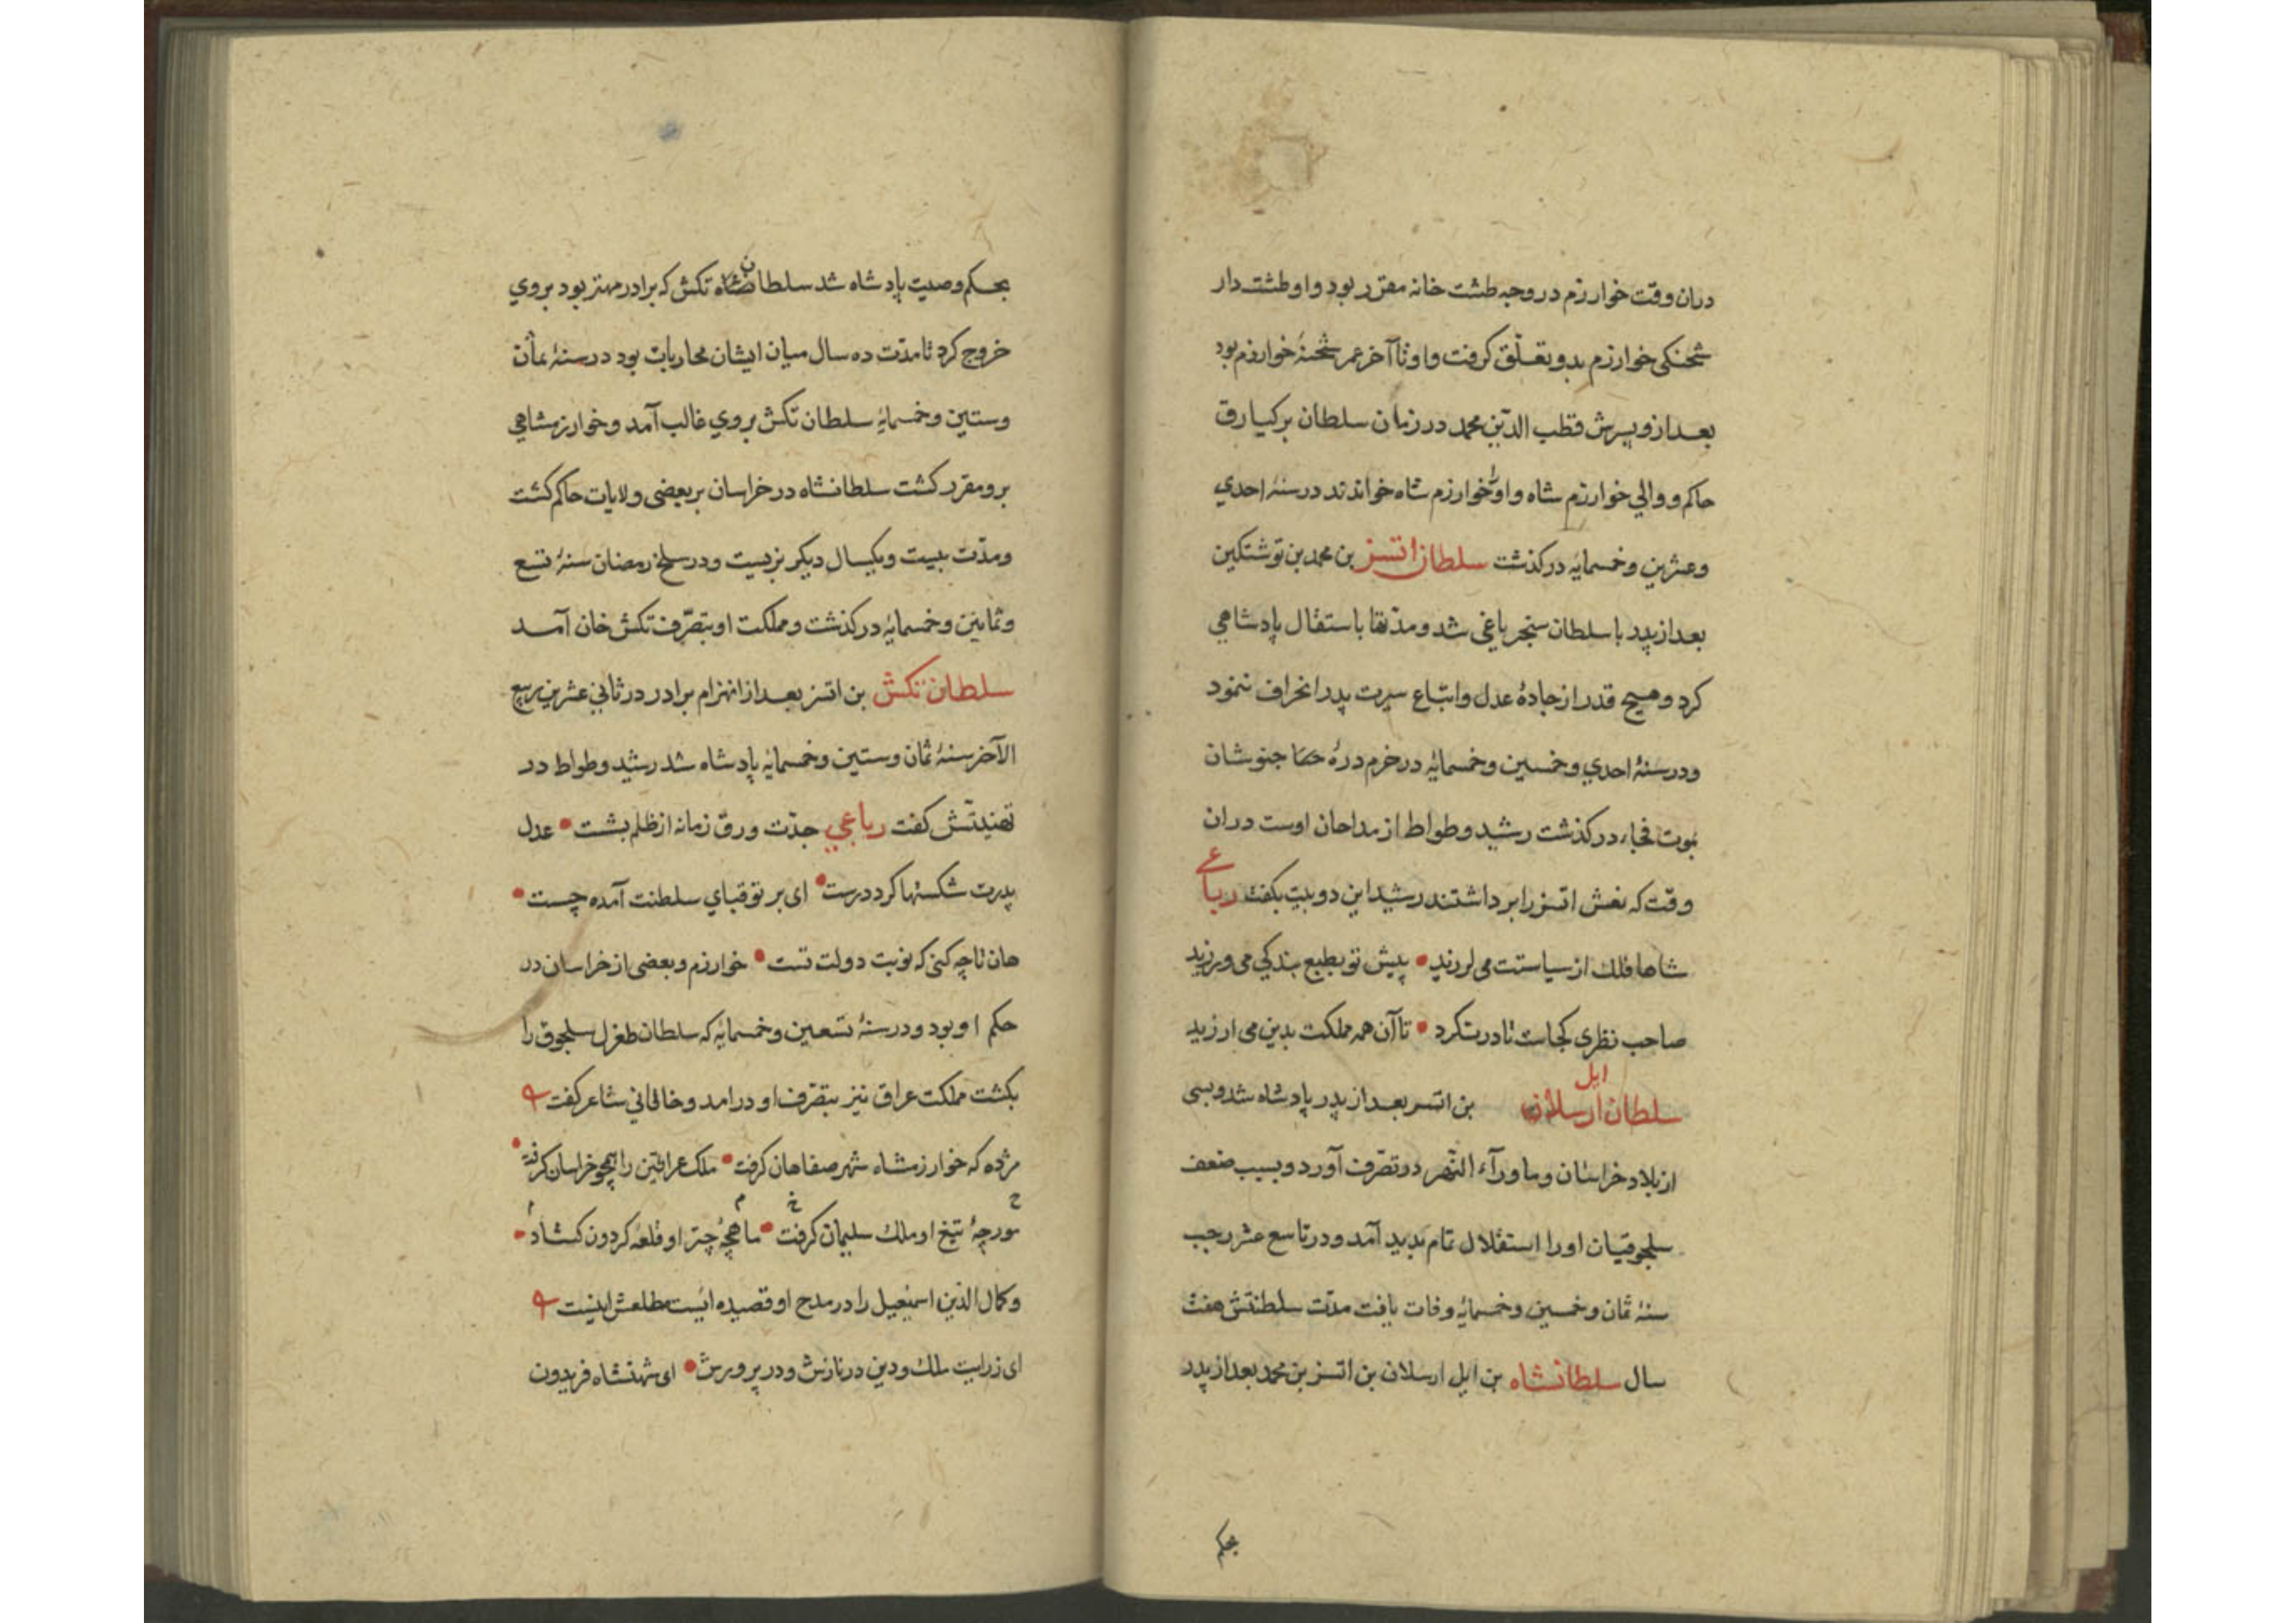 دران وقت خوارزم در وجه طشت خانه مقرر بود و او طشت دار
شحنکی خوارزم بدو تعلّق کرفت و او تا آخر عمر شحنهٔ خوارزم بود
بعد ازو پسرش قطب الدّین محمد در زمان سلطان برکیارق
حاکم و والی خوارزم شاه و اورا خوارزم شاه خواندند در سنهٔ احدی
وعشرین وخمسمایٔه درکذشت سلطان اتسز بن محمد بن نوشتکین
بعد از پدر با سلطان سنجر یاغی شد و مدّتها باستقلال پادشاهی
کرد و هیچ قدر از جادهٔ عدل و اتباع سیرت پدر انحراف ننمود
ودر سنهٔ احدی وخمسین وخمسمایٔه در خرم درهٔ جنوشان
بموت فجاء درکذشت رشید وطواط از مداحان اوست دران
وقت که نعش اتسز را برداشتند رشید این دو بیت بکفت رباعی
شاها فلك از سیاستت می لرزید • پیش تو بطبع بندکی می ورزید
صاحب نظری کجاست تا درنکرد • تا آن همه مملکت بدین می ارزید
سلطان ایل ارسلان بن اتسز بعد از پدر پادشاه شد وبسی
از بلاد خراسان و ماورآء النّهر در تصرّف آورد و بسبب ضعف
سلجوقیان اورا استقلال تمام پدید آمد ودر تاسع عشر رجب
سنهٔ ثمان وخمسین وخمسمایٔه وفات یافت مدّت سلطنتش هفت
سال سلطانشاه بن ایل ارسلان بن اتسز بن محمد بعد از پدر
بحکم
بحکم وصیت پادشاه شد سلطان تکش که برادر مهتر بود بروی
خروج کرد تا مدّت ده سال میان ایشان محاربات بود در سنهٔ ثمان
وستین وخمسمایٔه سلطان تکش بروی غالب آمد و خوارزمشاهی
برو مقرر کشت سلطانشاه در خراسان بر بعضی ولایات حاکم کشت
ومدّت بیست ویکسال دیکر بزیست ودر سلخ رمضان سنهٔ تسع
وثمانین وخمسمایٔه درکذشت و مملکت او بتصرّف تکش خان آمد
سلطان تکش بن اتسز بعد از انهزام برادر در ثانی عشرین ربیع
الآخر سنهٔ ثمان وستین وخمسمایٔه پادشاه شد رشید وطواط در
تهنیتش کفت رباعی جدّت ورق زمانه از ظلم بشست • عدل
پدرت شکستها کرد درست • ای بر تو قبای سلطنت آمده چست •
هان تا چه کنی که نوبت دولت تست • خوارزم و بعضی از خراسان در
حکم او بود ودر سنهٔ تسعین وخمسمایٔه که سلطان طغرل سلجوق را
بکشت مملکت عراق نیز بتصّرف او درامد و خاقانی شاعر کفت
مژده که خوارزمشاه شهر صفاهان کرفت • ملک عراقین را همچو خراسان کرفت •
مورچهٔ تیغ او ملك سلیمان کرفت • ماهچهٔ چتر او قلعهٔ کردون کشاد •
و کمال الدّین اسمعیل را در مدح او قصیده ایست مطلعش اینست
ای ز رایت ملك و دین در نازش و در پرورش • ای شهنشاه فریدون